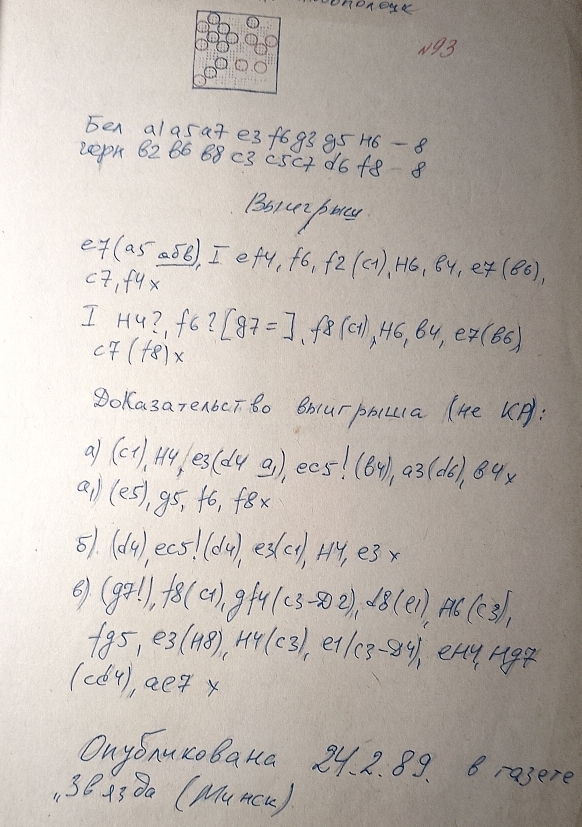 №93
Бел a1 a5 a7 e3 f6 g3 g5 H6 – 8
черн b2 b6 b8 c3 c5 c7 d6 f8 – 8
Выигрыш
e7 (a5 абв), I ef4, f6, f2 (c1), H6, b4, e7 (b6),
c7, f4 x
I H4?, f6? [g7=], f8 (c1), H6, b4, e7 (b6)
c7 (f8) x
Доказательство выигрыша (не КР):
а) (c1), H4, e3 (d4 а₁), ec5! (b4), a3 (d6), b4 x
а₁) (e5), g5, f6, f8 x
б). (d4), ec5! (d4), e3 (c1), H4, e3 x
в) (g7!), f8 (c1), gf4 (c3-D2), f8 (e1), H6 (c3),
fg5, e3 (H8), H4 (c3), e1 (c3-D4), eH4, Hg7
(cd4), ae7 x
Опубликована 24.2.89. в газете
„Звязда (Минск)